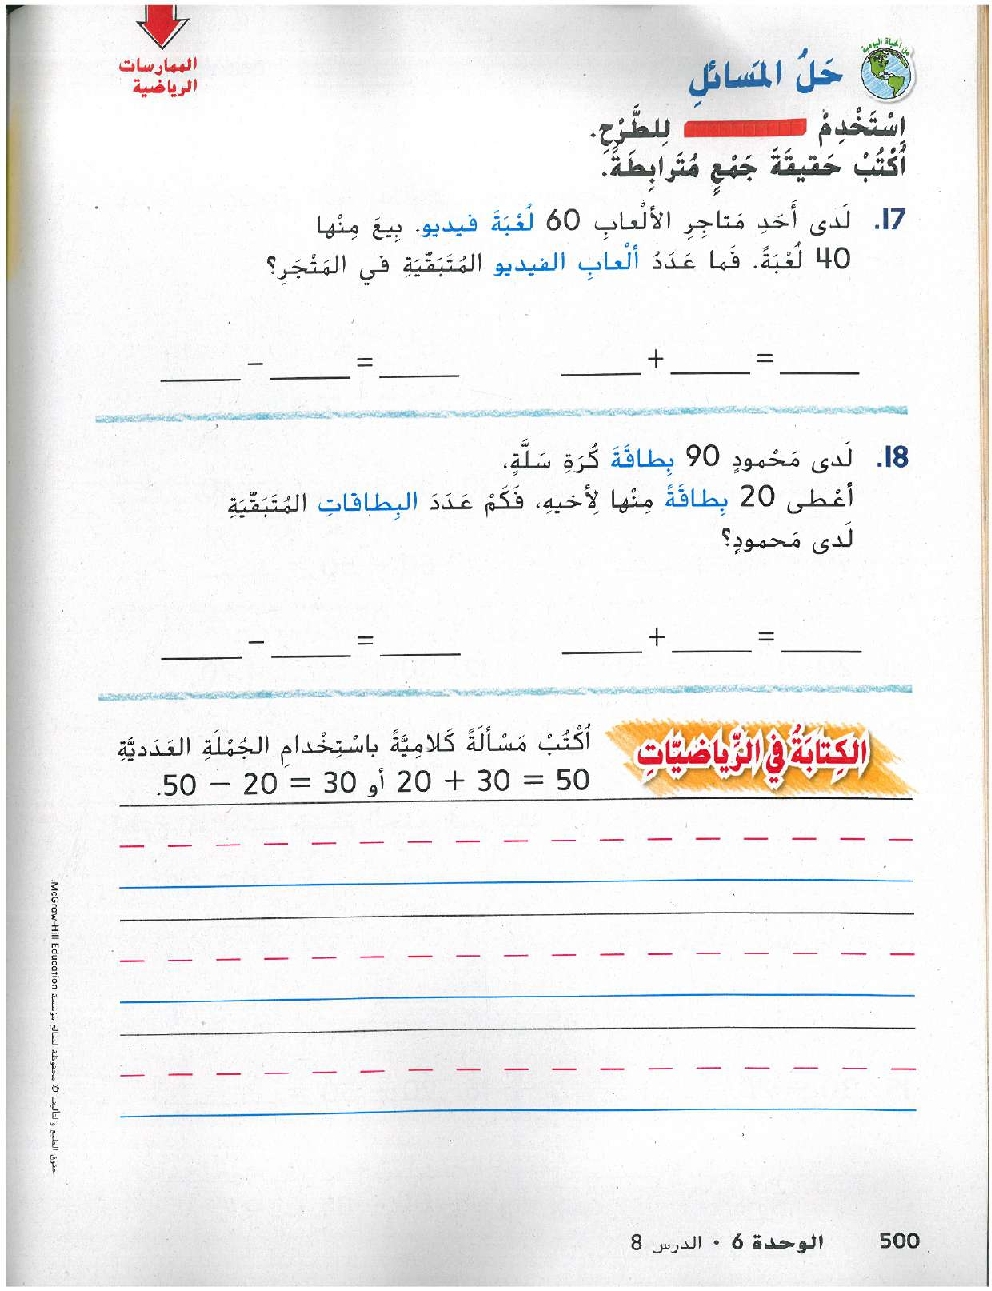 الممارسات
الرياضية
حل الحياة اليومية
حَلُّ المَسائِلِ
اِسْتَخْدِمْ لِلطَّرْحِ.
اُكْتُبْ حَقيقَةَ جَمْعٍ مُتَرابِطَةً.
17. لَدى أَحَدِ مَتاجِرِ الألْعابِ 60 لُعْبَةَ فيديو. بِيعَ مِنْها
40 لُعْبَةً. فَما عَدَدُ ألْعابِ الفيديو المُتَبَقّيَةِ في المَتْجَرِ؟
____ − ____ = ____ ____ + ____ = ____
18. لَدى مَحْمودٍ 90 بِطاقَةَ كُرَةِ سَلَّةٍ.
أعْطى 20 بِطاقَةً مِنْها لِأخيهِ، فَكَمْ عَدَدَ البِطاقاتِ المُتَبَقّيَةِ
لَدى مَحمودٍ؟
____ − ____ = ____ ____ + ____ = ____
الكِتابَةُ في الرِّياضيّاتِ
اُكْتُبْ مَسْألَةً كَلامِيَّةً باسْتِخْدامِ الجُمْلَةِ العَدَديَّةِ
20 + 30 = 50 أو 50 − 20 = 30.
حقوق الطبع والتأليف © محفوظة لصالح مؤسسة McGraw-Hill Education.
500 الوحدة 6 • الدرس 8